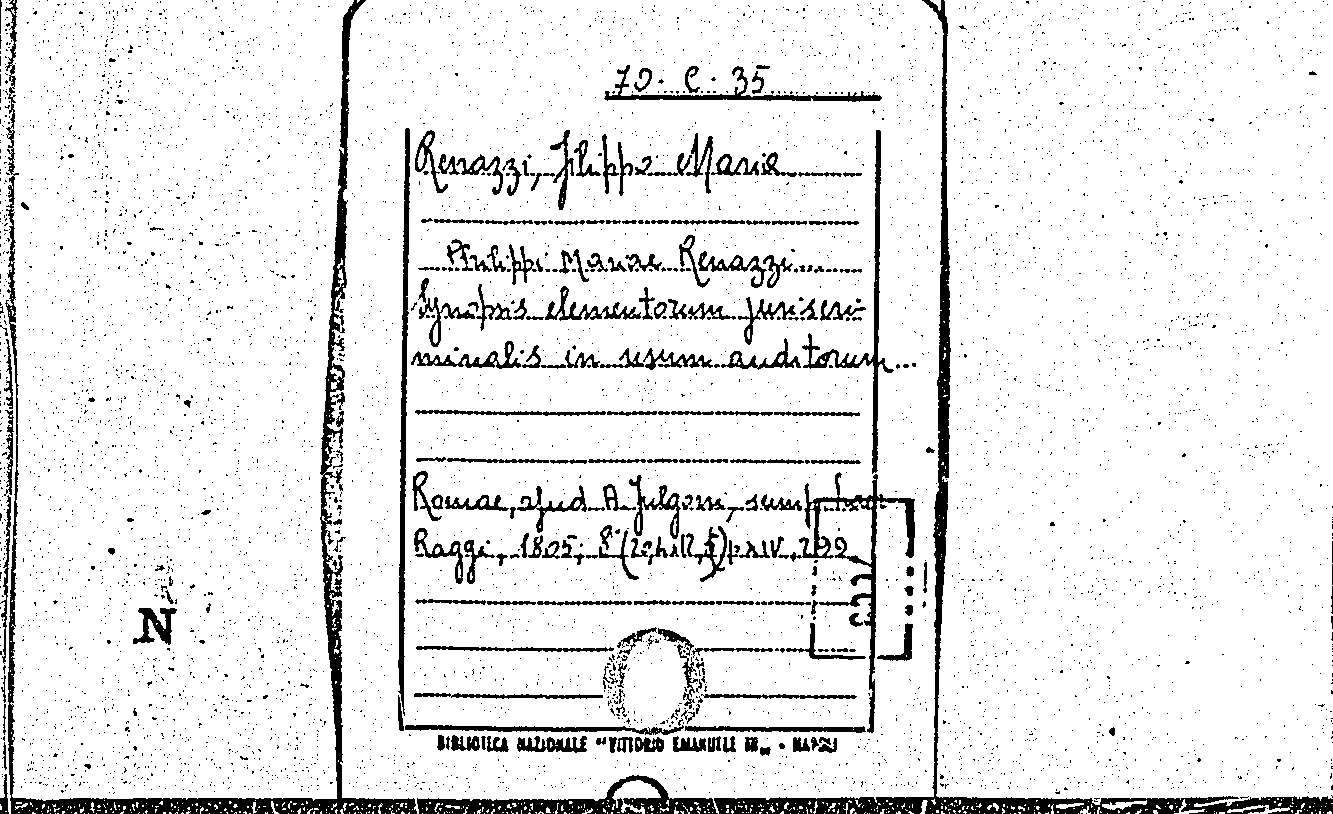 70. C. 35
Renazzi, Filippo Maria
Philippi Mariae Renazzi...
Synopsis elementorum juriscri-
minalis in usum auditorum...
Romae, apud A. Fulgoni, sumpt.
Raggi, 1805; 8° p. XIV, 299
N
BIBLIOTECA NAZIONALE "VITTORIO EMANUELE III" - NAPOLI